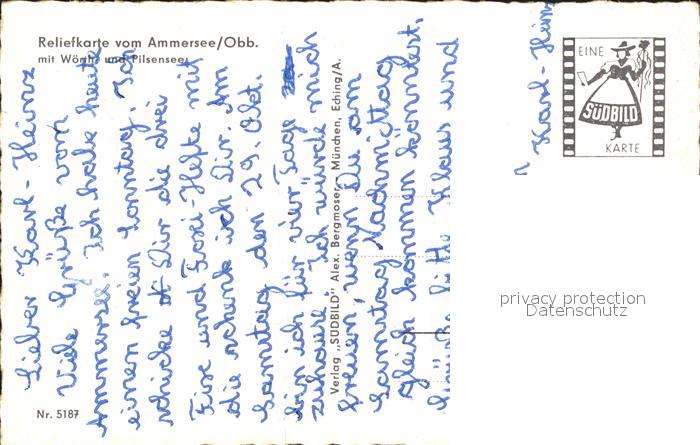 Reliefkarte vom Ammersee/Obb.
mit Wörth- und Pilsensee
Lieber Karl-Heinz
Viele Grüße vom
Ammersee. Ich habe heute
einen freien Sonntag. Ich
schicke Dir die drei
Fixe und Foxi-Hefte mit
die schenk ich Dir. Am
Samstag den 29. Okt.
bin ich für vier Tage
zuhause. Ich würde mich
freuen, wenn Du am
Samstag Nachmittag
gleich kommen könntest.
bitte Klaus und
Verlag „SÜDBILD" Alex. Bergmoser, München, Eching/A.
Nr. 5187
Karl-Hein
EINE
SÜDBILD
KARTE
privacy protection
Datenschutz